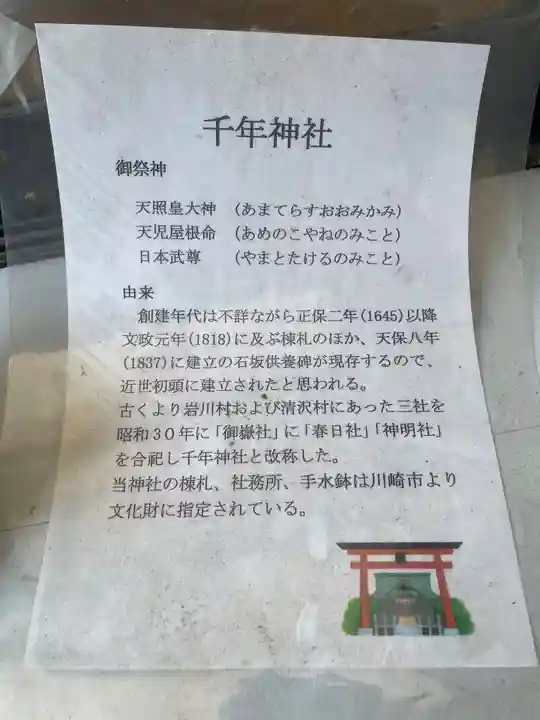 千年神社
御祭神
天照皇大神 (あまてらすおおみかみ)
天児屋根命 (あめのこやねのみこと)
日本武尊 (やまとたけるのみこと)
由来
創建年代は不詳ながら正保二年(1645)以降
文政元年(1818)に及ぶ棟札のほか、天保八年
(1837)に建立の石坂供養碑が現存するので、
近世初頭に建立されたと思われる。
古くより岩川村および清沢村にあった三社を
昭和30年に「御嶽社」に「春日社」「神明社」
を合祀し千年神社と改称した。
当神社の棟札、社務所、手水鉢は川崎市より
文化財に指定されている。